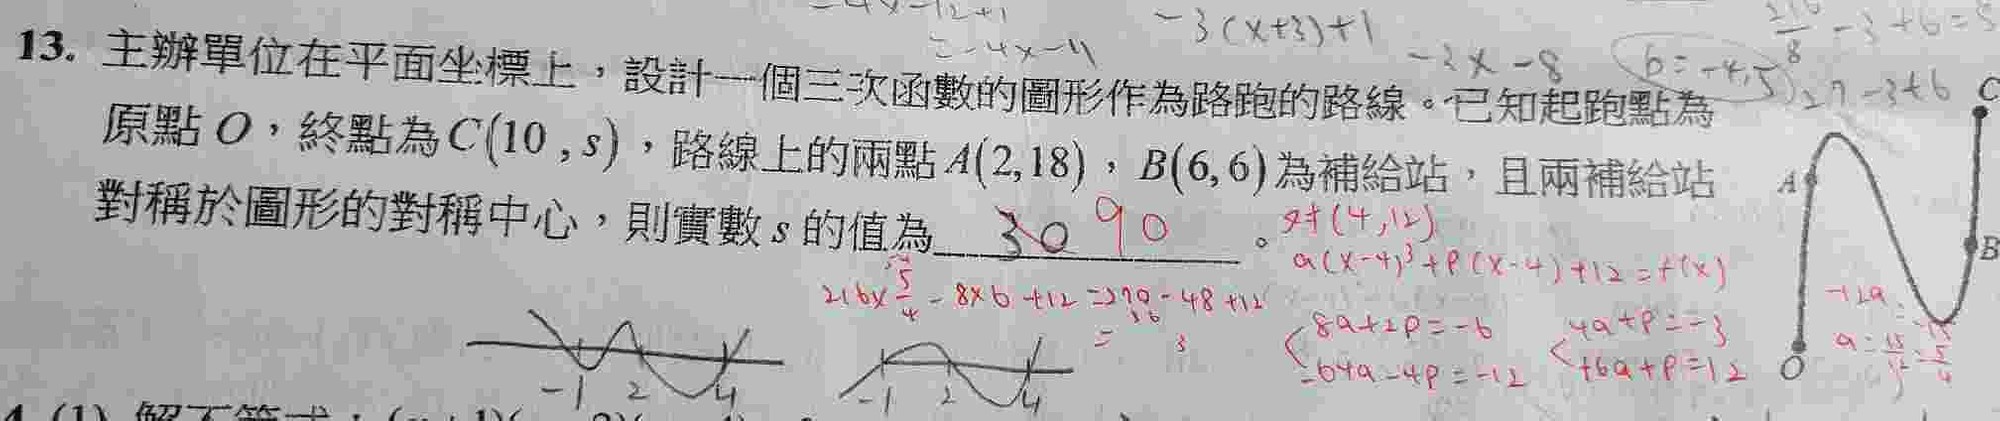 -4x-12+1
-3(x+3)+1
=-4x-11
-3x-8
b=-4.5
27-3+b
13. 主辦單位在平面坐標上，設計一個三次函數的圖形作為路跑的路線。已知起跑點為
原點 O，終點為 C(10 , s)，路線上的兩點 A(2,18)，B(6,6) 為補給站，且兩補給站
對稱於圖形的對稱中心，則實數 s 的值為 30 90 。
(4,12)
a(x-4)³+p(x-4)+12=f(x)
8a+2p=-6
-64a-4p=-12
4a+p=-3
16a+p=12
-12a
-8×6+12
-48+12
C
A
B
O
-1 2 4
-1 2 4